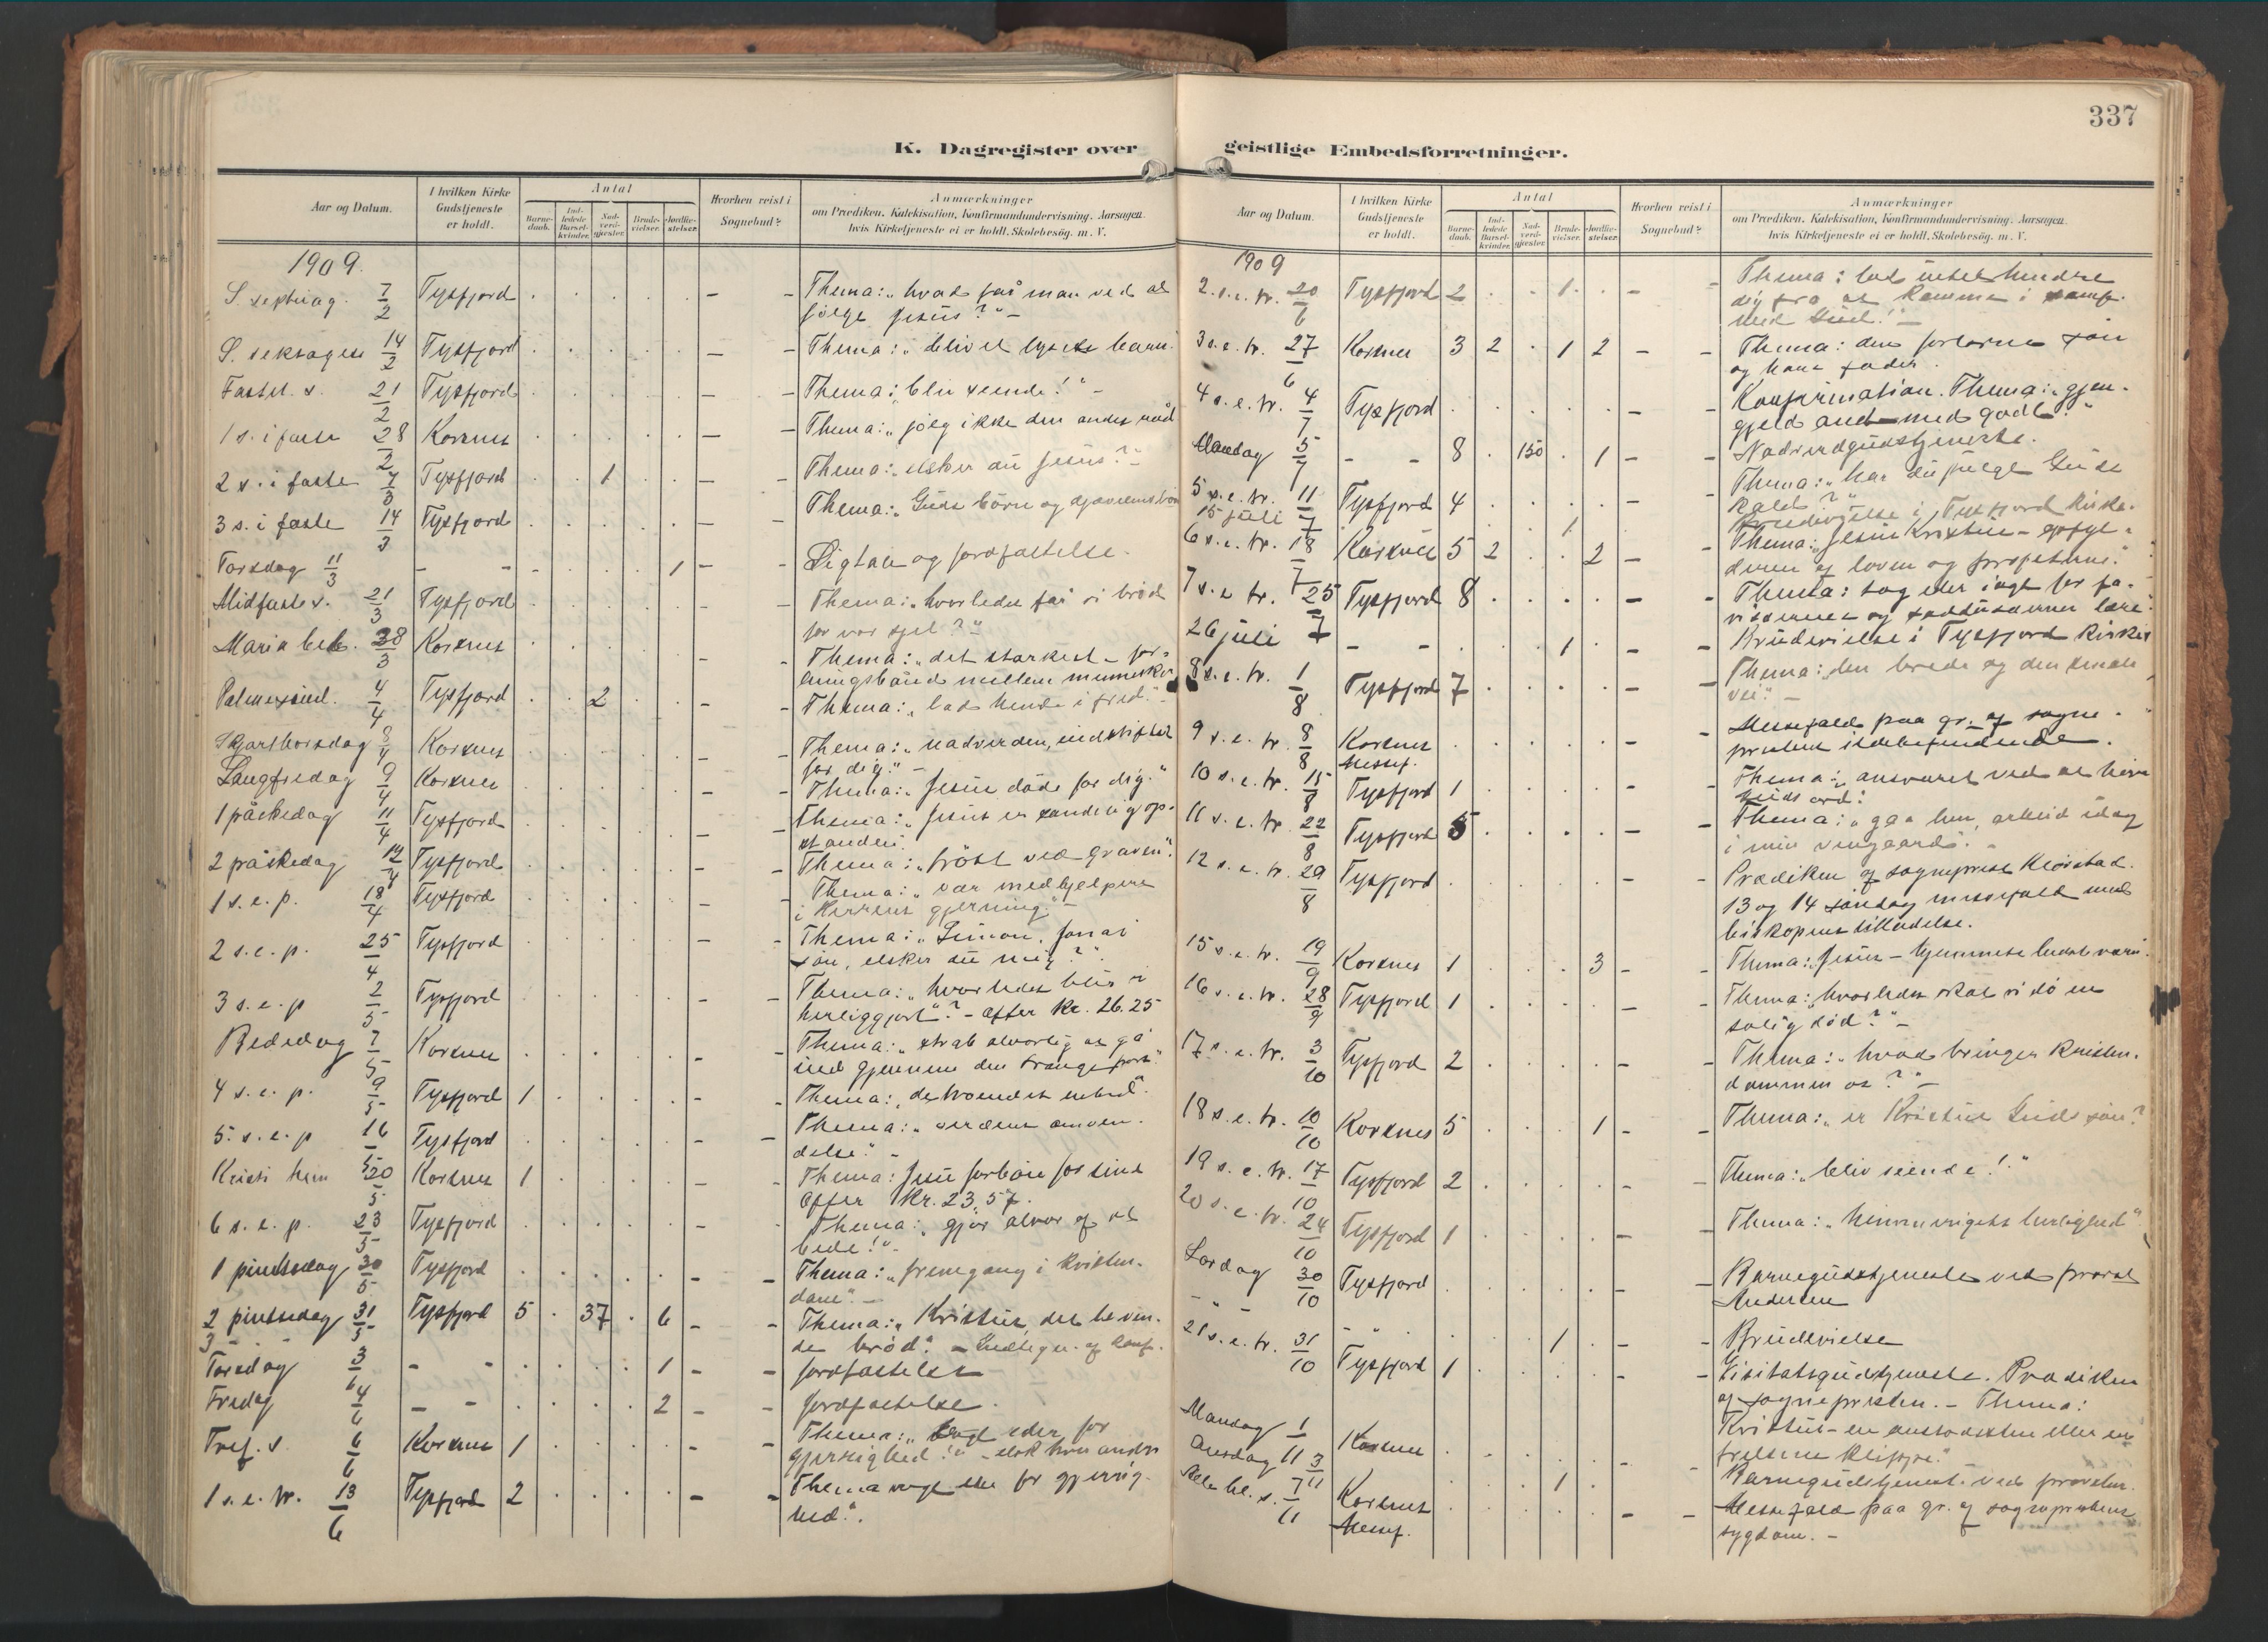 337
K. Dagregister over
Aar og Datum.
I hvilken Kirke Gudstjeneste er holdt.
Antal
Barne-daab.
Ind-ledede Barsel-kvinder.
Nad-verd-gjester.
Brude-vielser.
Jordfæ-stelser.
Hvorhen reist i Sognebud?
Anmærkninger
om Prædiken, Katekisation, Konfirmandundervisning, Aarsagen
hvis Kirketjeneste ei er holdt, Skolebesög. m. V.
1909.
S. septuag. 7/2 Tysfjord . . . . . - - Thema: „hvad får man ved at
følge Jesus?“ -
S. seksages 14/2 Tysfjord . . . . . - - Thema: „bliv et lysets barn
Fastel. s. 21/2 Tysfjord . . . . . - - Thema: „bliv seende!“ -
1 s. i faste 28/2 Korsnes . . . . . - Thema: „følg ikke den anden
2 s. i faste 7/3 Tysfjord . . 1 . . Thema: „elsker du Jesus?“
3 s. i faste 14/3 Tysfjord . . . . . - - Thema: „Guds børn og djævelens
Torsdag 11/3 - - . . . . 1 - - Ligtale og jordfæstelse.
Midfastes. 21/3 Tysfjord . . . . . - - Thema: „hvorledes får vi brød
for vor sjel?“
Maria beb. 28/3 Korsnes . . . . . - - Thema: „det stærkeste for-
eningsbånd mellem mennesker
Palmesønd. 4/4 Tysfjord . . 2 . . - - Thema: „lad hende i fred.“
Skjærtorsdag 8/4 Korsnes . . . . . - - Thema: „nadverden, indstiftet
for dig.“ -
Langfredag 9/4 Korsnes . . . . . - - Thema: „Jesus døde for dig.“
1 påskedag 11/4 Tysfjord . . . . . - - Thema: „Jesus er sandelig op-
standen.
2 påskedag 12/4 Tysfjord . . . . . - - Thema: „trøst ved graven“.
1 s. e. p. 18/4 Tysfjord . . . . . - - Thema: „vær medhjelpere
i Herrens gjerning“ -
2 s. e. p. 25/4 Tysfjord . . . . . - - Thema: „Simon, Jonas
søn, elsker du mig?“
3 s. e. p 2/5 Tysfjord . . . . . - - Thema: „hvorledes blir vi
herliggjort“? - efter Kr. 26.25
Bededag 7/5 Korsnes . . . . . - - Thema: „stræb alvorlig at gå
ind gjennem den trange port“
4 s. e. p. 9/5 Tysfjord 1 . . . . - - Thema:
5. s. e. p 16/5 Tysfjord . . . . . - - Thema: „verdens omven-
delse“ -
Kristi him 20/5 Korsnes 1 . . . . - - Thema: Jesu forbøn for sine
efter Kr. 23, 57.
6 s. e. p. 23/5 Tysfjord . . . . . - - Thema: „gjør alvor af at
bede!“ -
1 pintsedag 30/5 Tysfjord . . . . . - - Thema: „fremgang i kristen-
dom“. -
2 pintsedag 31/5 Tysfjord 5 . 37 . 6 - - Thema: „Kristus det leven-
de brød“.
Torsdag 3/6 - - . . . . 1 - - Jordfæstelse
Fredag 4/6 - - . . . . 2 - - Jordfæstelse.
Tref. s. 6/6 Korsnes 1 . . . . - - Thema: „vogt eder for
gjerrighed!“
1 s. e. tr. 13/6 Tysfjord 2 . . . . - - Thema vogt eder for gjerrig-
hed“.
geistlige Embedsforretninger.
Aar og Datum.
I hvilken Kirke Gudstjeneste er holdt.
Antal
Barne-daab.
Ind-ledede Barsel-kvinder.
Nad-verd-gjester.
Brude-vielser.
Jordfæ-stelser.
Hvorhen reist i Sognebud?
Anmærkninger
om Prædiken, Katekisation, Konfirmandundervisning, Aarsagen,
hvis Kirketjeneste ei er holdt, Skolebesög. m. V.
1909
2. s. e. tr. 20/6 Tysfjord 2 . . 1 . - - Thema: lad intet hindre
dig fra at komme i samf.
med Gud! -
3 s. e. tr. 27/6 Korsnes 3 2 . 1 2 - - Thema: den fortabte søn
og hans fader.
4 s. e. tr. 4/7 Tysfjord . . . . . - - Konfirmation. Thema: „gjen-
gjeld ondt med godt.“
Mandag 5/7 - - 8 . 150 . 1 - - Nadverdgudstjeneste.
5 s. e. tr. 11/7 Tysfjord 4 . . . . - - Thema: „har du fulgt Guds
kald?“
15 juli 1 Brudevielse i Tysfjord kirke.
6 s. e. tr. 18/7 Korsnes 5 2 . . 2 - - Thema: „Jesus Kristus - opfyl-
deren af loven og profeterne.“
7 s. e. tr. 25/7 Tysfjord 8 . . . . - - Thema: tag eder iagt for fa-
risæernes og saddusæernes lære“
26 juli 7 - - . . . 1 . - - Brudevielse i Tysfjord kirke
8 s. e. tr. 1/8 Tysfjord 7 . . . . - - Thema: „den brede og den smale
vei“ -
9 s. e. tr. 8/8 Korsnes Messef. . . . . . - - Messefald paa gr. af sogne-
prestens ildebefindende.
10 s. e. tr. 15/8 Tysfjord 1 . . . . - - Thema: „ansvaret ved at høre
Guds ord“
11 s. e. tr. 22/8 Tysfjord 5 . . . . - - Thema: „gaa hen, arbeid idag
i min vingaard“. -
12 s. e. tr. 29/8 Tysfjord . . . . . - - Prædiken af sogneprest
13 og 14 søndag messefald med
biskopens tilladelse.
15 s. e. tr. 19/9 Korsnes 1 . . . 3 - - Thema: „Jesus -
16 s. e. tr. 28/9 Tysfjord 1 . . . . - - Thema: „hvorledes skal vi dø en
salig død?“ -
17 s. e. tr. 3/10 Tysfjord 2 . . . . - - Thema: „hvad bringer kristen-
dommen os?“ -
18 s. e. tr. 10/10 Korsnes 5 . . . 1 - - Thema: „er Kristus Guds søn?
19 s. e. tr. 17/10 Tysfjord 2 . . . . - - Thema: „bliv seende!“
20 s. e. tr. 24/10 Tysfjord 1 . . . . - - Thema: „himmerigets herlighed“
Lørdag 30/10 Tysfjord . . . . . - Barnegudstjeneste ved provst
Andersen
- „ - - „ . . . 1 . - - Brudevielse
21 s. e. tr. 31/10 Tysfjord 1 . . . . - - Visitatsgudstjeneste. Prædiken
af sognepresten. - Thema:
Kristus - en anstødssten eller en
frelsens klippe“
Mandag 1/11 Korsnes . . . . . - Barnegudstjenest. ved provsten.
Onsdag 3/11 1
Alle hel. s. 7/11 Korsnes Messef. . . . . . - - Messefald paa gr. af sogneprestens
sygdom. -